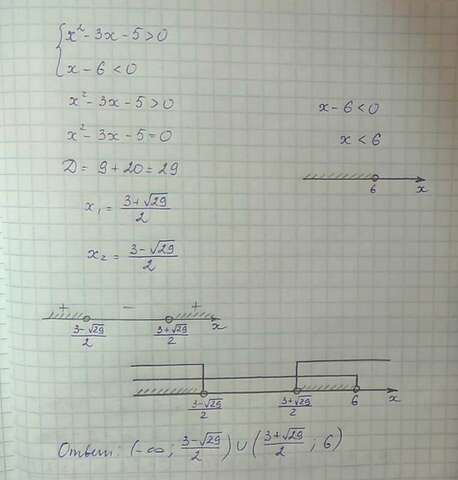 { x² - 3x - 5 > 0
x - 6 < 0
x² - 3x - 5 > 0
x² - 3x - 5 = 0
D = 9 + 20 = 29
x₁ = (3+√29)/2
x₂ = (3-√29)/2
x - 6 < 0
x < 6
6 x
+ - +
(3-√29)/2 (3+√29)/2 x
(3-√29)/2 (3+√29)/2 6 x
Ответ: (-∞; (3-√29)/2) ∪ ((3+√29)/2; 6)